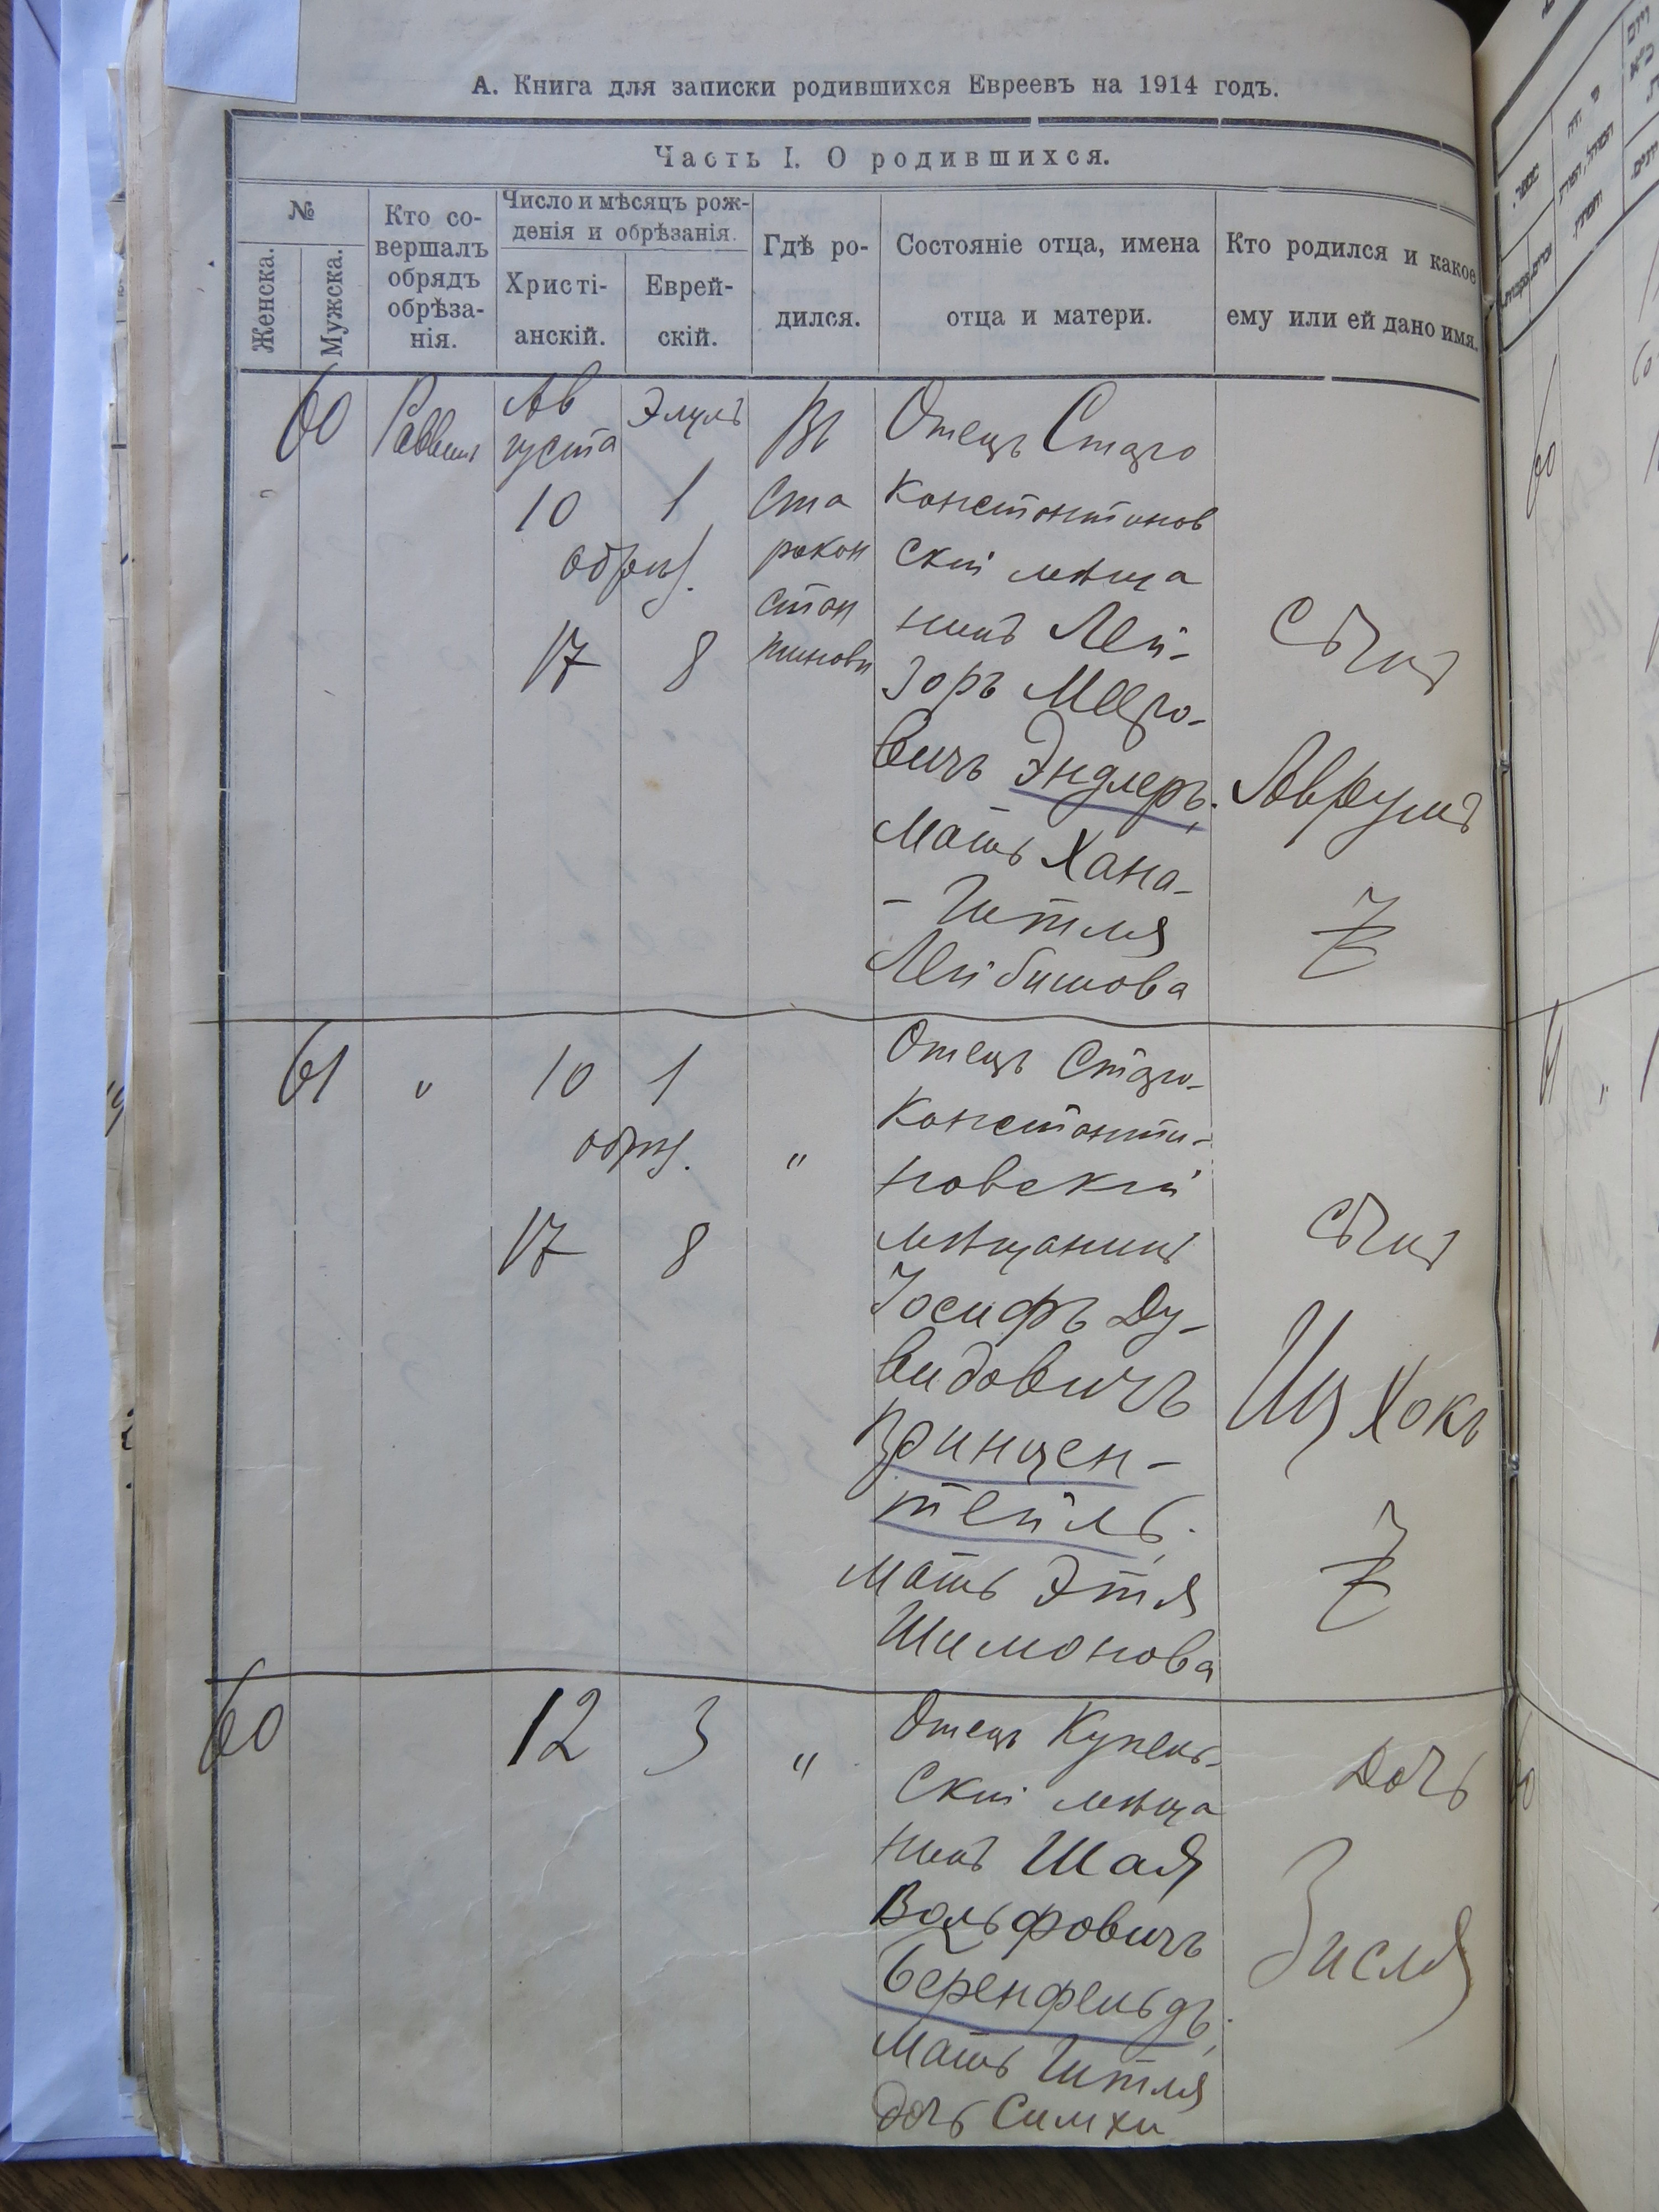 А. Книга для записки родившихся Евреевъ на 1914 годъ.
Часть I. О родившихся.
№
Женска.
Мужска.
Кто со-
вершалъ
обрядъ
обрѣза-
нія.
Число и мѣсяцъ рож-
денія и обрѣзанія.
Христі-
анскій.
Еврей-
скій.
Гдѣ ро-
дился.
Состояніе отца, имена
отца и матери.
Кто родился и какое
ему или ей дано имя.
60
Раввин
Ав
густа
10
обрѣз.
17
Элулъ
1
8
Въ
Ста
рокон
стан
тиновѣ
Отецъ Старо
константинов
скій мѣща
нинъ Лей-
зоръ Мееро-
вичъ Эндлеръ.
Мать Хана-
- Гитля
Лейбишова
сынъ
Аврумъ
61
"
10
1
обрѣз.
17
8
"
Отецъ Старо-
константи-
новскій
мѣщанинъ
Іосифъ Ду-
видовичъ
Принцен-
тейлъ.
Мать Этля
Шимонова
сынъ
Ицхокъ
60
12
3
"
Отецъ Купель-
скій мѣща
нинъ Шая
Вольфовичъ
Беренфельдъ.
Мать Гитля
дочь Симхи
дочь
Зисля